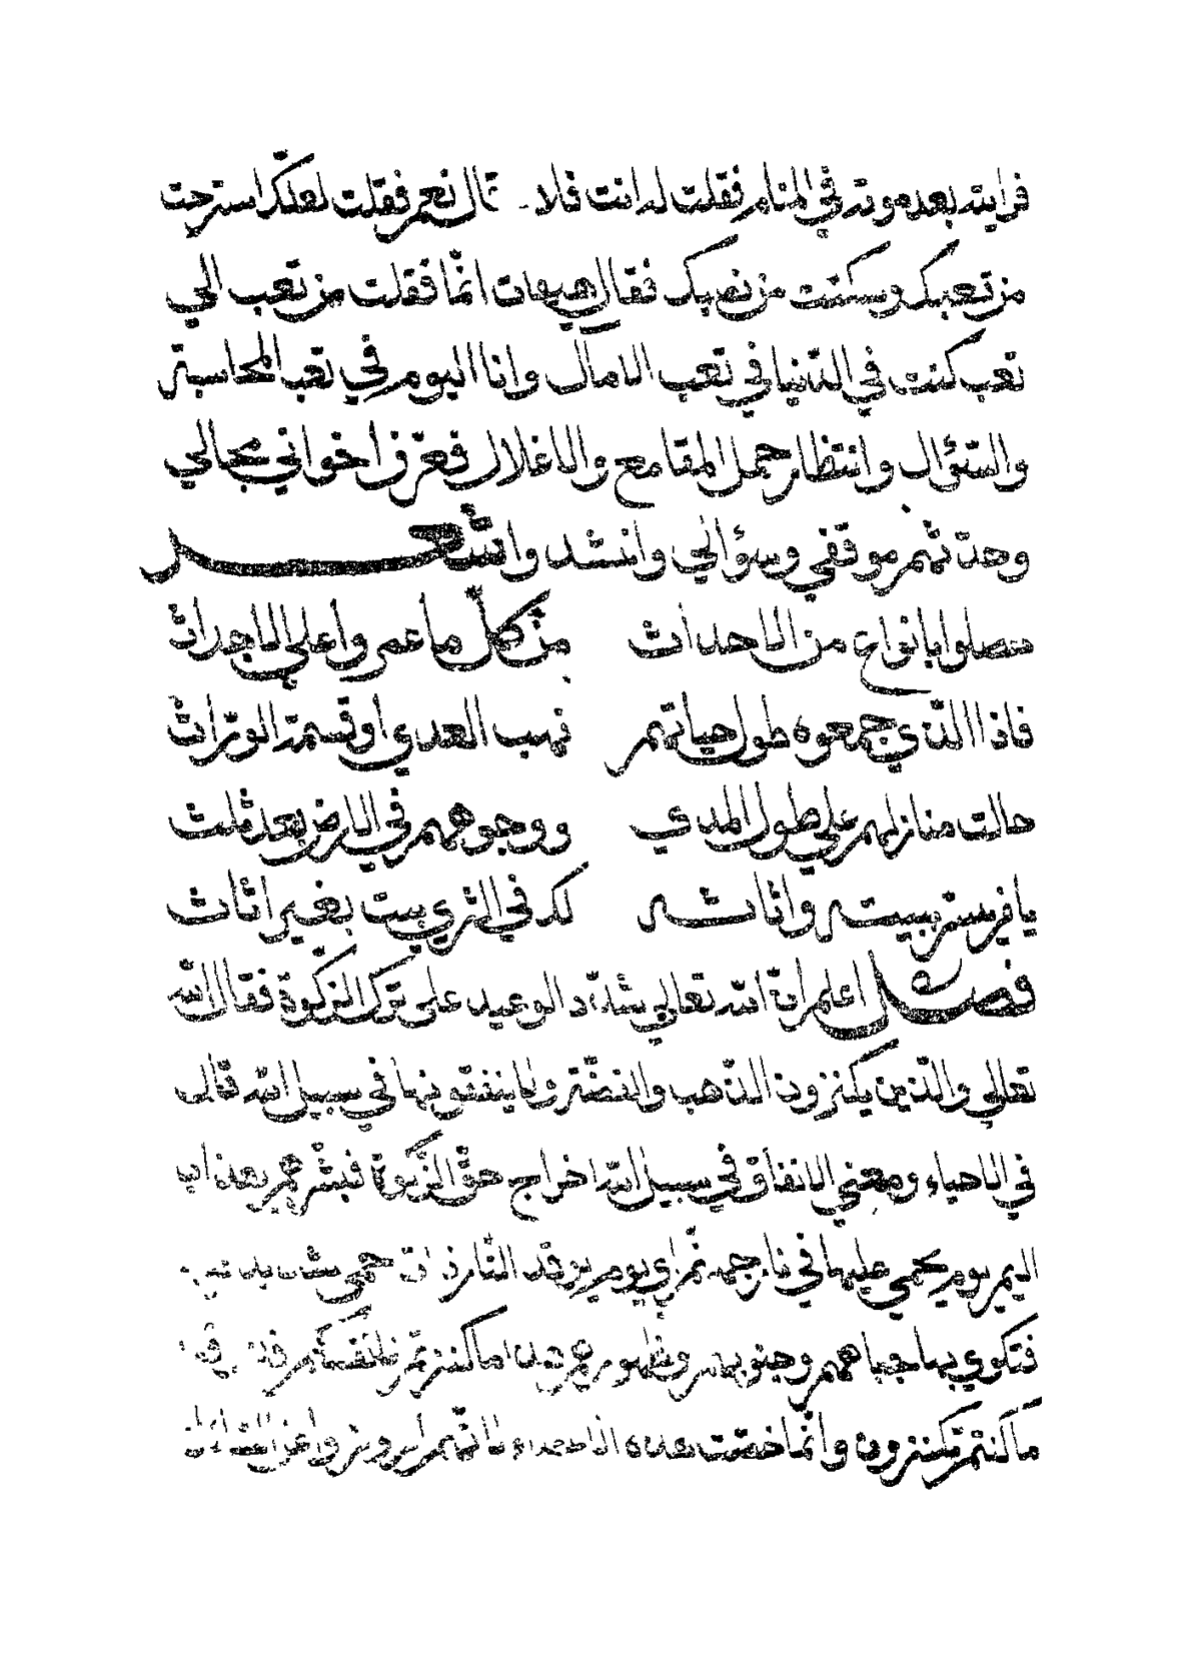 فرايته بعد موته في المنام فقلت له انت فلان قال نعم فقلت لعلك استرحت
من تعبك وسكنت من نصبك فقال هيهات انما فقلت من تعب الي
تعب كنت في الدنيا في تعب الامال وانا اليوم في تعب المحاسبة
والسؤال وانتظار حمل المقامع والاغلال فعرف اخواني بحالي
وحدثهم موقفي وسؤالي وانشد واشعر
حصلوا بانواع من الاحداث من كل ما عمروا على الاجداث
فاذا الذي جمعوه طول حياتهم نهب العدي او قسمة الوراث
حالت منازلهم على طول المدي ووجوههم في الارض بعد ثلث
يا فرستر ببيته واثاثه لك في الثري بيت بغير اثاث
فصل اعلم ان الله تعالي شدد الوعيد على ترك الزكوة فقال الله
تعالي والذين يكنزون الذهب والفضة ولا ينفقونها في سبيل الله قال
في الاحياء ومعني الانفاق في سبيل الله اخراج حق الزكوة فبشرهم بعذاب
اليم يوم يحمي عليها في نار جهنم اي يوم يوقد النار ذات حمي شديد
فتكوي بها جباههم وجنوبهم وظهورهم هذا ما كنزتم لانفسكم فذوقوا
ما كنتم تكنزون وانما خصت هذه الاعضاء لانهم